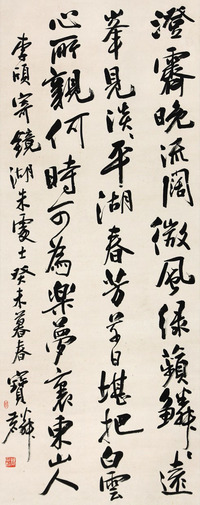 澄霽晚流闊微風綠蘋鱗〻遠
峯見淡〻平湖春芳草日堪把白雲
心所親何時可為樂夢裏東山人
李頎寄鏡湖朱處士癸未暮春寶麟